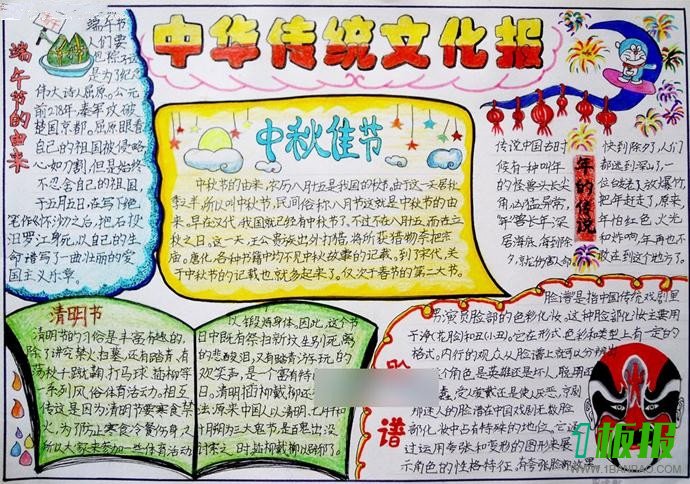 中华传统文化报
端午节的由来
端午节
人们要
是为了纪念
伟大诗人屈原。公元
前278年,秦军攻破
楚国京都。屈原眼看
自己的祖国被侵略
心如刀割,但是始终
不忍舍自己的祖国
于五月五日,在写下绝
笔作《怀沙》之后,抱石投
汨罗江身死,以自己的生命
谱写了一曲壮丽的爱
国主义乐章。
中秋佳节
中秋节的由来,农历八月十五是我国的
所以叫中秋节,民间俗称八月节这就是中秋节的由
来。早在汉代,我国就已经有中秋节了,不过不在八月十五,而在立
秋之日,这一天,王公贵族出外打猎,将所获猎物奈把宗
庙。唐化,各种书籍中均不见中秋故事的记载,到了宋代,关
于中秋节的记载也就多起来了。仅次于春节的第二大节。
年的传说
传说中国古时
候有一种叫年
的怪兽头长尖
角,凶猛异常,
年兽长年深
居海底,每到除
夕,
快到除夕人们
都逃到深山了一
位
把年赶走了,原来,
年怕红色,火光
和炸响,年再也不
敢达到这个地方了。
清明节
清明节的习俗是丰富有趣的,
除了讲究禁火扫墓,还有踏青、有
荡秋千踢鞠打马球、插柳等
一系列风俗体育活动。相互
传这是因为清明节要寒食禁
火,为了防止寒食冷餐伤身,又
所以大家来参加一些体育活动
以锻炼身体。因此,这个节
日中既有祭扫新坟生别死离
的悲酸泪,又有踏青游玩的
欢笑声,是一个富有特
清明插柳戴柳还有
法原来中国人以清明、七月半和
十月朔为三大鬼节,是百鬼出没
讨索之时,
脸谱
脸谱是指中国传统戏剧里
男演员脸部的色彩化妆。这种脸部化妆主要用
于净(花脸)和丑(小丑),它在形式色彩和类型上有一定的
格式。内行的观众从脸谱上就可以分辨出
个角色是英雄还是坏人,聪明
受人爱戴还是使人厌恶,京剧
那迷人的脸谱在中国戏剧无数脸
部化妆中占有特殊的地位。它
过运用夸张和变形的图形来展
示角色的性格特征,
1板报
WWW.1BANBAO.COM